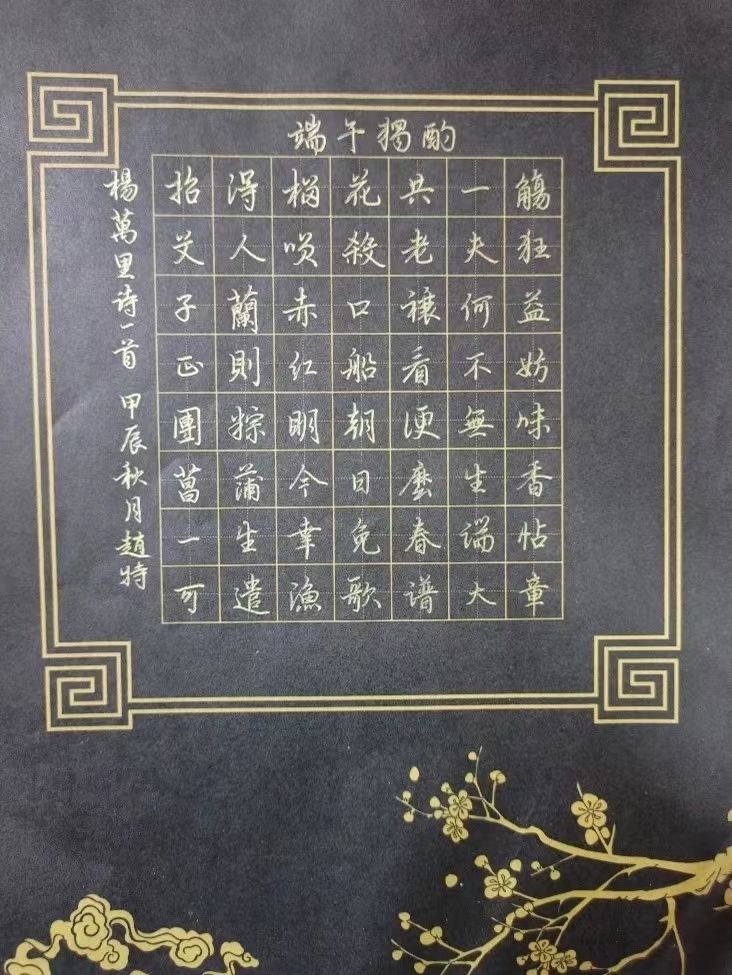 端午獨酌
招得榴花共一觴
艾人咲殺老夫狂
子蘭赤口禳何益
正則红船看不妨
團粽明朝便無味
菖蒲今日麼生香
一生幸免春端帖
可遣漁歌谱大章
楊萬里诗一首 甲辰秋月趙特